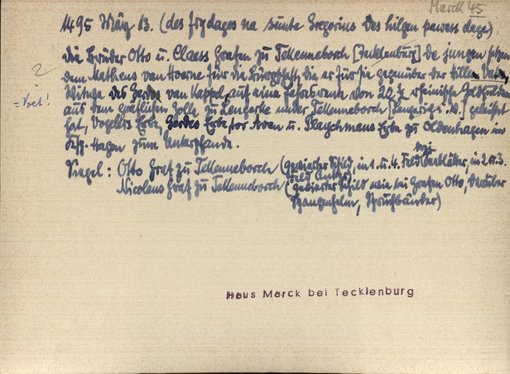 Marck 45
1495 März 13. (des frydages na sunte Gregorius des hilgen pawess dage).
Die Brüder Otto u. Claess Grafen zu Tekenneborch [Tecklenburg] de jungen setzen
dem Mathens van Hoerne für die Bürgschaft, die er für sie gegenüber der
Witwe des Gerdes van Kappel, auf eine Jahresrente von 22 ½ rheinische Goldgulden
aus dem gräflichen Zolle zu Lengerke unter Tekenneborch [Lengerich i. W.] geleistet
= Voet!
hat, Vogells Erbe, Gerdes Erbe tor Avan u. Erbe zu Oldenhagen im
Ksp. Hagen zum Unterpfande.
Siegel: Otto Graf zu Tekenneborch (gevierter Schild, in 1. u. 4. Feld drei Seeblätter, in 2. u. 3.
Feld Anker)
Nicolaus Graf zu Tekenneborch (gevierter Schild wie bei Grafen Otto, darüber
Spangenhelm, Spruchbänder)
Haus Marck bei Tecklenburg